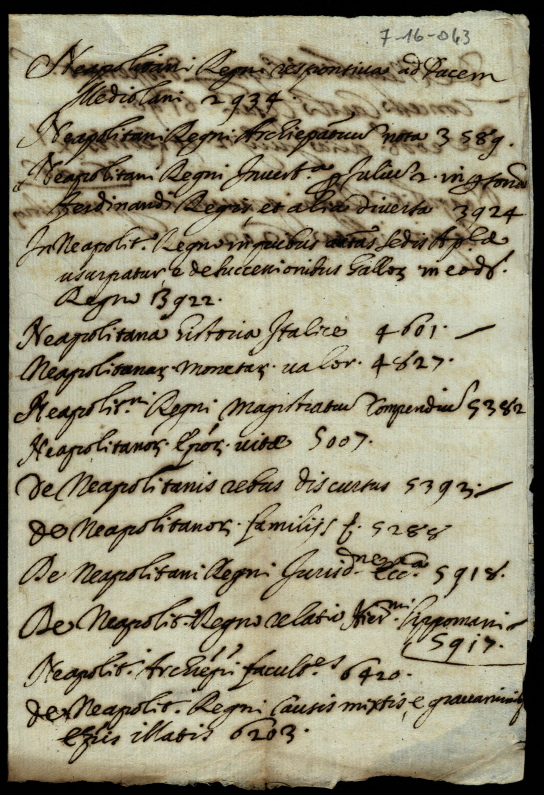 7-16-063
Neapolitani Regni responsiva ad Pacem
Mediolani 2934
Neapolitani Regni Archiepatuum nota 3589.
Neapolitani Regni Invest.ra Julius 2. in
Ferdinandi Regis et alia diversa 3924
In Neapolit.º Regno in quibus Sedis Ap.licæ
usurpatur, e de successionibus Gallor. in eod.
Regno 3922.
Neapolitana historia Italice 4601.
Neapolitanar. monetar. valor. 4827.
Neapolit.ni Regni magistratuum Compendium 5382
Neapolitanor. Ep̃or. vitæ 5007.
De Neapolitanis rebus discursus 5393.
de Neapolitanor. familijs f. 5288
De Neapolitani Regni Jurisd.ne Ecc.ca 5918.
De Neapolit.º Regno relatio Hier.mi Lippomani
5917.
Neapolit.i Archiep̃i facult.es 6420.
de Neapolit.i Regni Causis mixtis, e gravaminibq
Ep̃is illatis 6203.